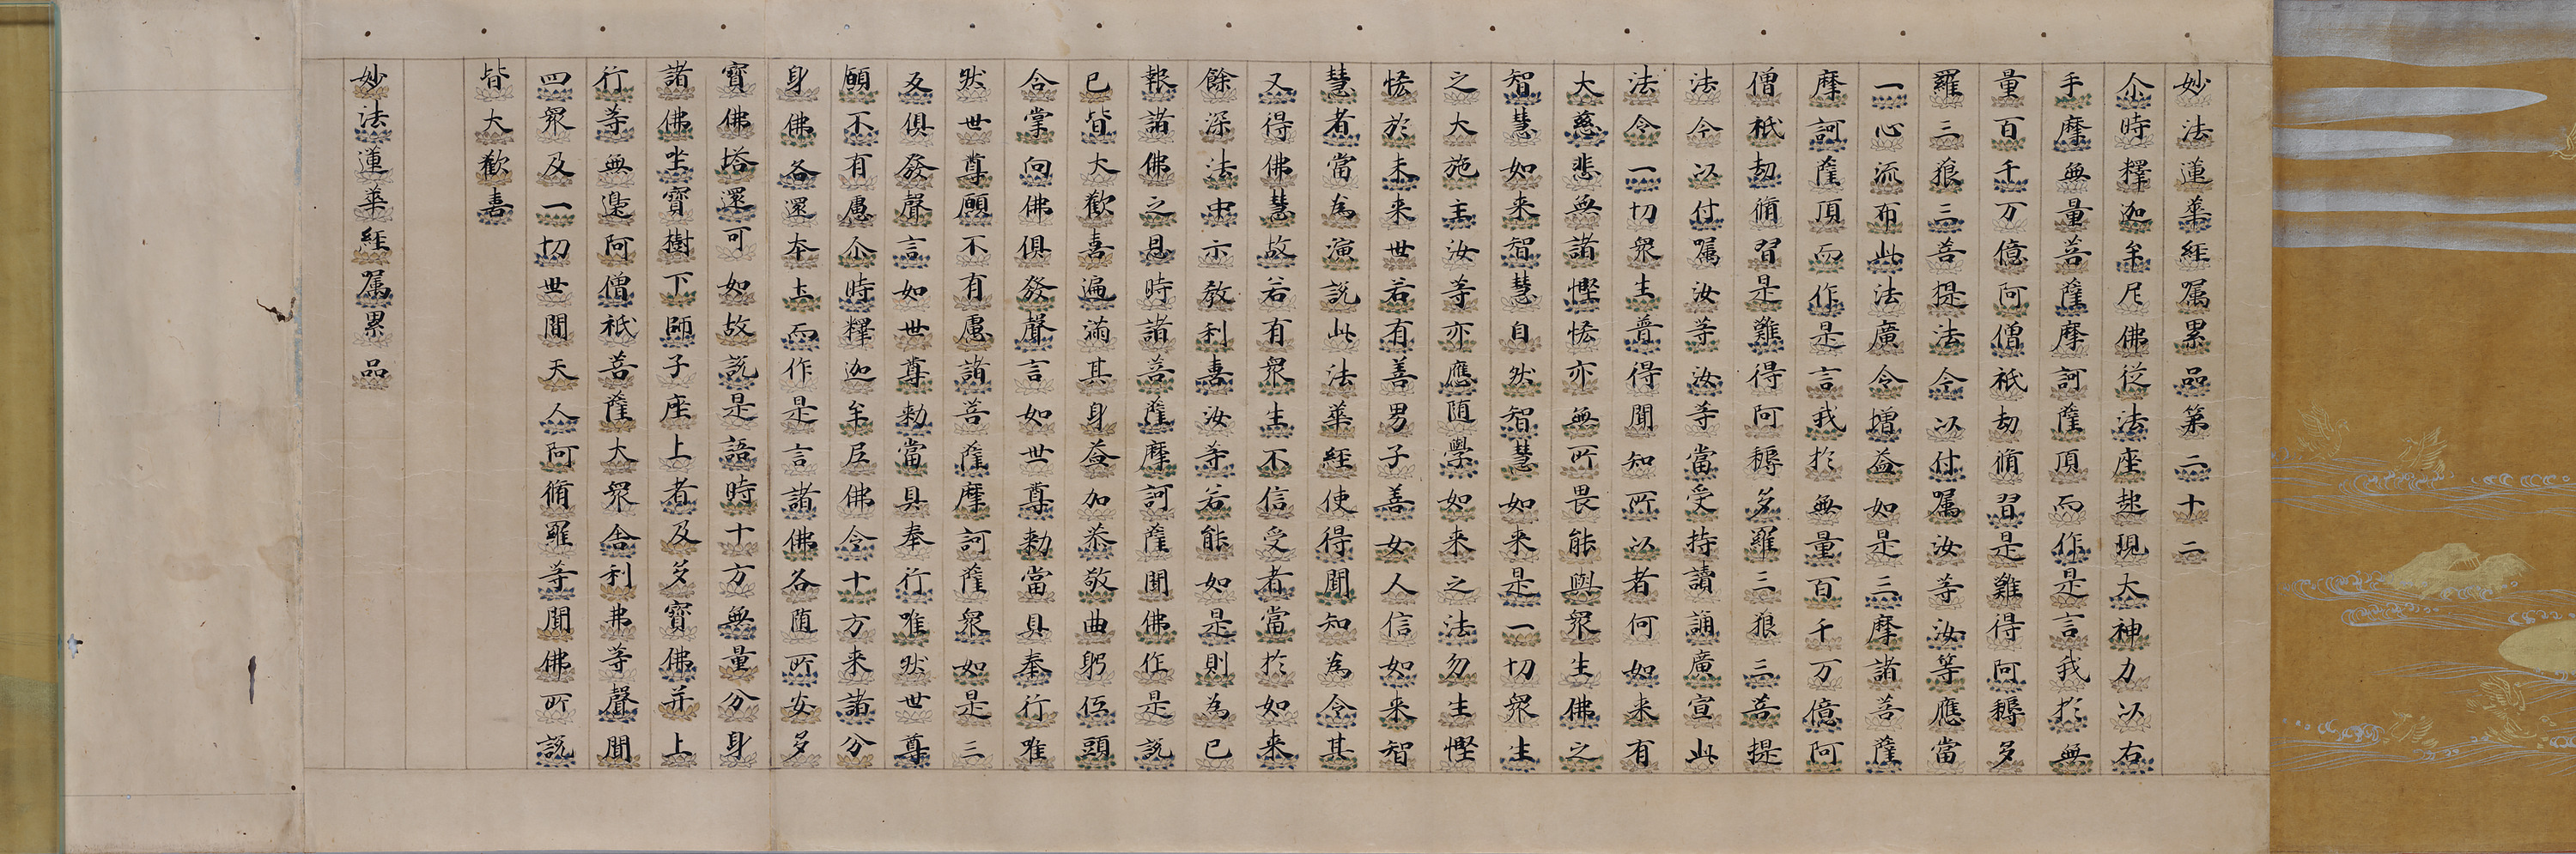 妙法蓮華経嘱累品第二十二
尒時釋迦牟尼佛從法座起現大神力以右
手摩無量菩薩摩訶薩頂而作是言我於無
量百千万億阿僧祇劫脩習是難得阿耨多
羅三藐三菩提法今以付嘱汝等汝等應當
一心流布此法廣令增益如是三摩諸菩薩
摩訶薩頂而作是言我於無量百千万億阿
僧祇劫脩習是難得阿耨多羅三藐三菩提
法今以付嘱汝等汝等當受持讀誦廣宣此
法令一切衆生普得聞知所以者何如来有
大慈悲無諸慳悋亦無所畏能與衆生佛之
智慧如来智慧自然智慧如来是一切衆生
之大施主汝等亦應随學如来之法勿生慳
悋於未来世若有善男子善女人信如来智
慧者當為演說此法華経使得聞知為令其
又得佛慧故若有衆生不信受者當於如来
餘深法中示教利喜汝等若能如是則為已
報諸佛之恩時諸菩薩摩訶薩聞佛作是說
已皆大歡喜遍滿其身益加恭敬曲躬伍頭
合掌向佛俱發聲言如世尊勅當具奉行唯
然世尊願不有慮諸菩薩摩訶薩衆如是三
反俱發聲言如世尊勅當具奉行唯然世尊
願不有慮尒時釋迦牟尼佛令十方来諸分
身佛各還本土而作是言諸佛各随所安多
寶佛塔還可如故說是語時十方無量分身
諸佛坐寶樹下師子座上者及多寶佛并上
行等無邊阿僧祇菩薩大衆舎利弗等聲聞
四衆及一切世間天人阿脩羅等聞佛所說
皆大歡喜
妙法蓮華経嘱累品